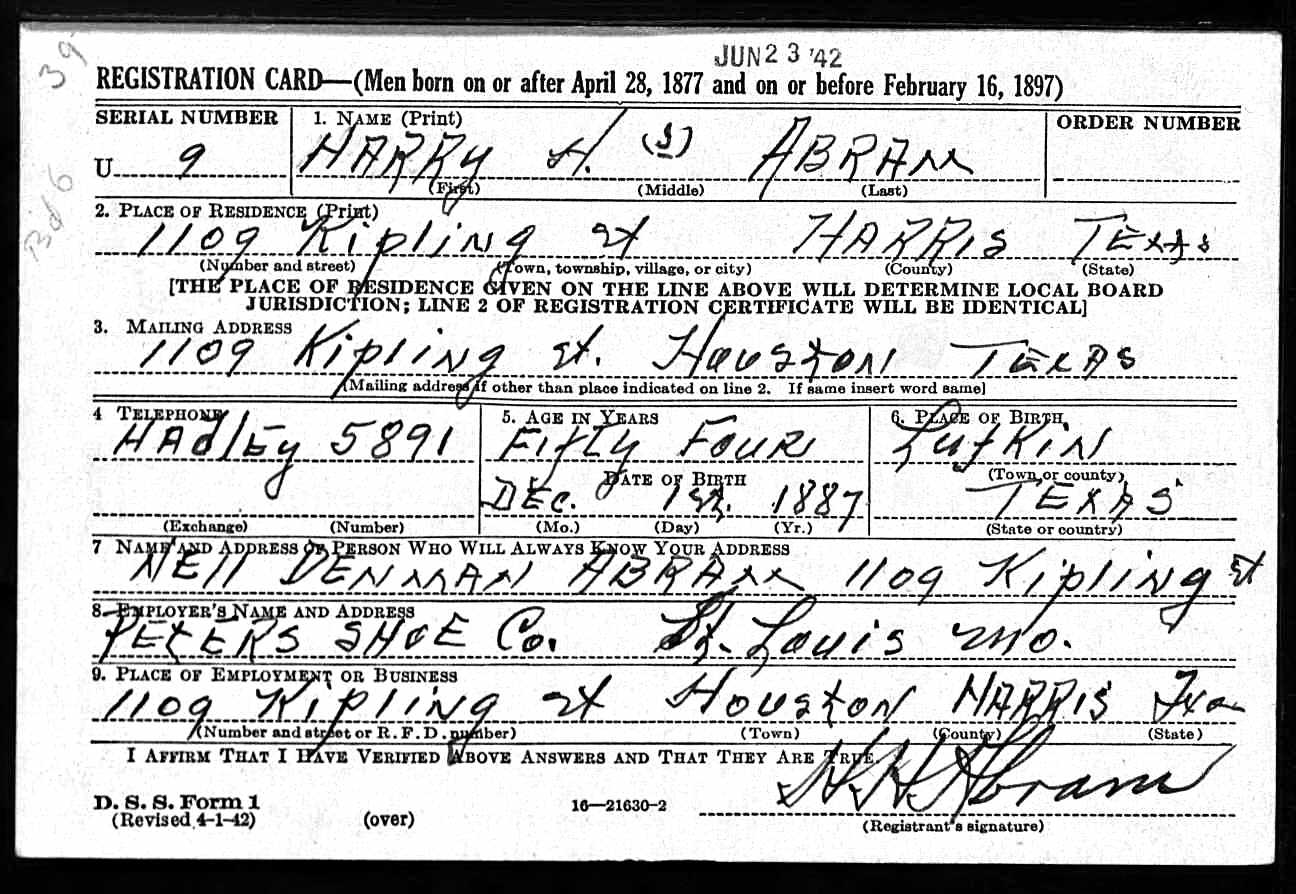 39
JUN 23 '42
REGISTRATION CARD—(Men born on or after April 28, 1877 and on or before February 16, 1897)
SERIAL NUMBER 1. NAME (Print) ORDER NUMBER
U 9 HARRY H. (S) ABRAM
(First) (Middle) (Last)
2. PLACE OF RESIDENCE (Print)
1109 Kipling St HARRIS TEXAS
(Number and street) (Town, township, village, or city) (County) (State)
[THE PLACE OF RESIDENCE GIVEN ON THE LINE ABOVE WILL DETERMINE LOCAL BOARD
JURISDICTION; LINE 2 OF REGISTRATION CERTIFICATE WILL BE IDENTICAL]
3. MAILING ADDRESS
1109 Kipling St. Houston TEXAS
[Mailing address if other than place indicated on line 2. If same insert word same]
4 TELEPHONE 5. AGE IN YEARS 6. PLACE OF BIRTH
HADLEY 5891 FIFTY FOUR LUFKIN
DATE OF BIRTH (Town or county)
DEC. 1st. 1887 TEXAS
(Exchange) (Number) (Mo.) (Day) (Yr.) (State or country)
7 NAME AND ADDRESS OF PERSON WHO WILL ALWAYS KNOW YOUR ADDRESS
NELL DENMAN ABRAM 1109 Kipling St
8. EMPLOYER'S NAME AND ADDRESS
PETERS SHOE Co. St. Louis Mo.
9. PLACE OF EMPLOYMENT OR BUSINESS
1109 Kipling St Houston HARRIS Texa
(Number and street or R. F. D. number) (Town) (County) (State)
I AFFIRM THAT I HAVE VERIFIED ABOVE ANSWERS AND THAT THEY ARE TRUE.
H. H. Abram
D. S. S. Form 1 16—21630-2
(Revised 4-1-42) (over) (Registrant's signature)